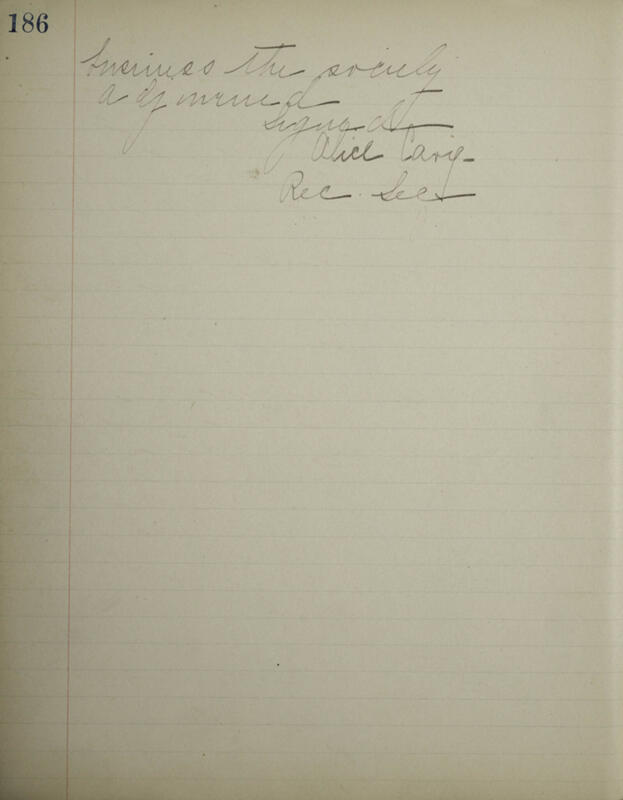 186
business the society
adjourned
Signed
Alice
Rec. Sec